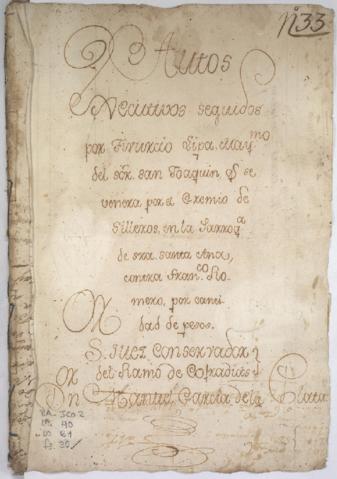 nº 33
Autos
Executtivos seguidos
por Tiburcio Lipa, Maymo
del sor. san Joaquin, q se
venera por el Gremio de
silleros, en la Parroqa
de sra. santa Ana,
contra Franco Ro-
mero, por canti-
dad de pesos.
S. Juez Conservador
del Ramo de Cofradias
Dn Manuel Garcia de la Plata